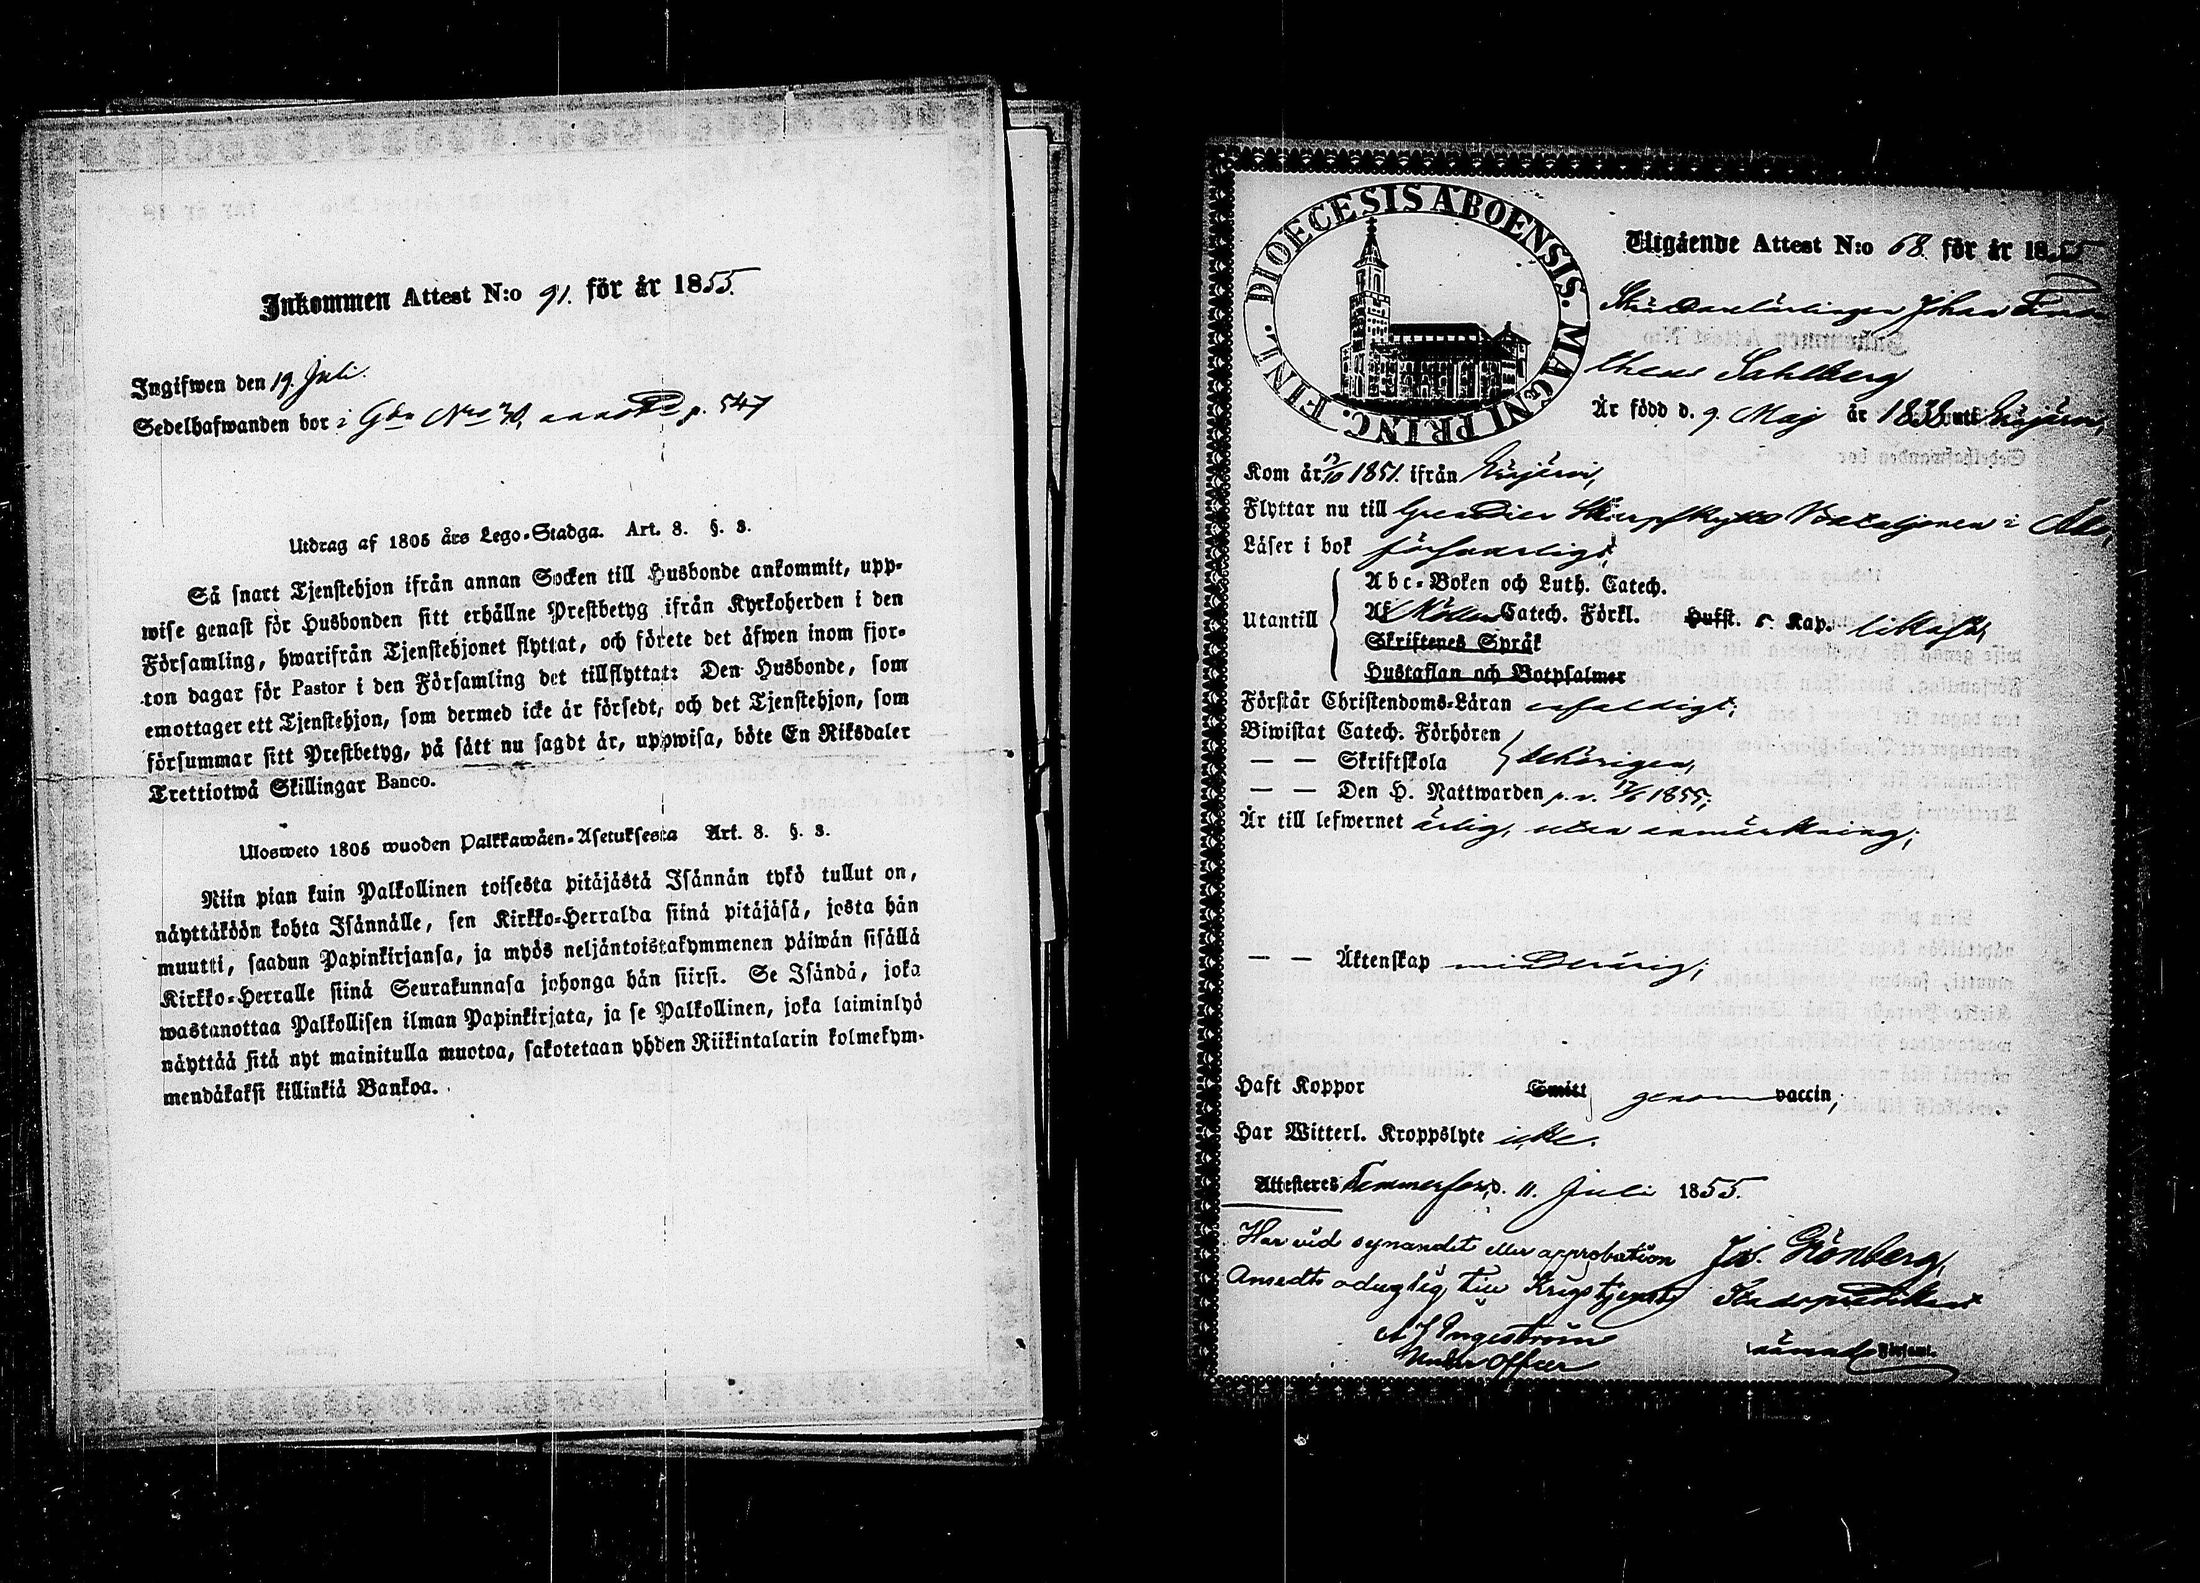 Inkommen Attest N:o 91. för år 1855.
Ingifwen den 19. Juli.
Sedelhafwanden bor i Gdn Nro 30, p. 547
Utdrag af 1805 års Lego-Stadga. Art. 8. §. 3.
Så snart Tjenstehjon ifrån annan Socken till Husbonde ankommit, upp-
wise genast för Husbonden sitt erhållne Prestbetyg ifrån Kyrkoherden i den
Församling, hwarifrån Tjenstehjonet flyttat, och förete det äfwen inom fjor-
ton dagar för Pastor i den Församling det tillflyttat: Den Husbonde, som
emottager ett Tjenstehjon, som dermed icke är försedt, och det Tjenstehjon, som
försummar sitt Prestbetyg, på sätt nu sagdt är, uppwisa, böte En Riksdaler
Trettiotwå Skillingar Banco.
Ulosweto 1805 wuoden Palkkawäen-Asetuksesta Art. 8. §. 3.
Niin pian kuin Palkollinen toisesta pitäjästä Isännän tykö tullut on,
näyttäköön kohta Isännälle, sen Kirkko-Herralda siinä pitäjäsä, josta hän
muutti, saadun Papinkirjansa, ja myös neljäntoistakymmenen päiwän sisällä
Kirkko-Herralle siinä Seurakunnasa johonga hän siirsi. Se Isändä, joka
wastanottaa Palkollisen ilman Papinkirjata, ja se Palkollinen, joka laiminlyö
näyttää sitä nyt mainitulla muotoa, sakotetaan yhden Riikintalarin kolmekym-
mendäkaksi killinkiä Bankoa.
DIOECESIS ABOENSIS. MAGNI PRINC. FINL.
Utgående Attest N:o 68. för år 1855
Skräddarelärlingen Johan Timo
theus Sahlberg
Är född d. 9. Maj år 1838 uti
Kom år 17/10 1851. ifrån
Flyttar nu till Grenadier Skarpskytte Bataljonen i Åbo,
Läser i bok försvarligt,
Utantill
Abc-Boken och Luth. Catech.
Af Catech. Förkl. Hufst. 5 Kap. likaså,
Skriftenes Språk
Hustaflan och Botpsalmer
Förstår Christendoms-Läran enfaldigt,
Biwistat Catech. Förhören
— — Skriftskola behörigen,
— — Den H. Nattwarden p. n. 17/6 1855;
Är till lefwernet ärlig, utan anmärkning;
— — Äktenskap minderårig;
Haft Koppor Smitt genom vaccin,
Har Witterl. Kroppslyte icke.
Attesteres Tammerfors, d. 11. Juli 1855.
Har vid synandet eller approbation
Ansedts oduglig till Krigstjenst
A J Ingeström
Under Officer
Jos. Grönberg,
Stadspredikant
Församl.